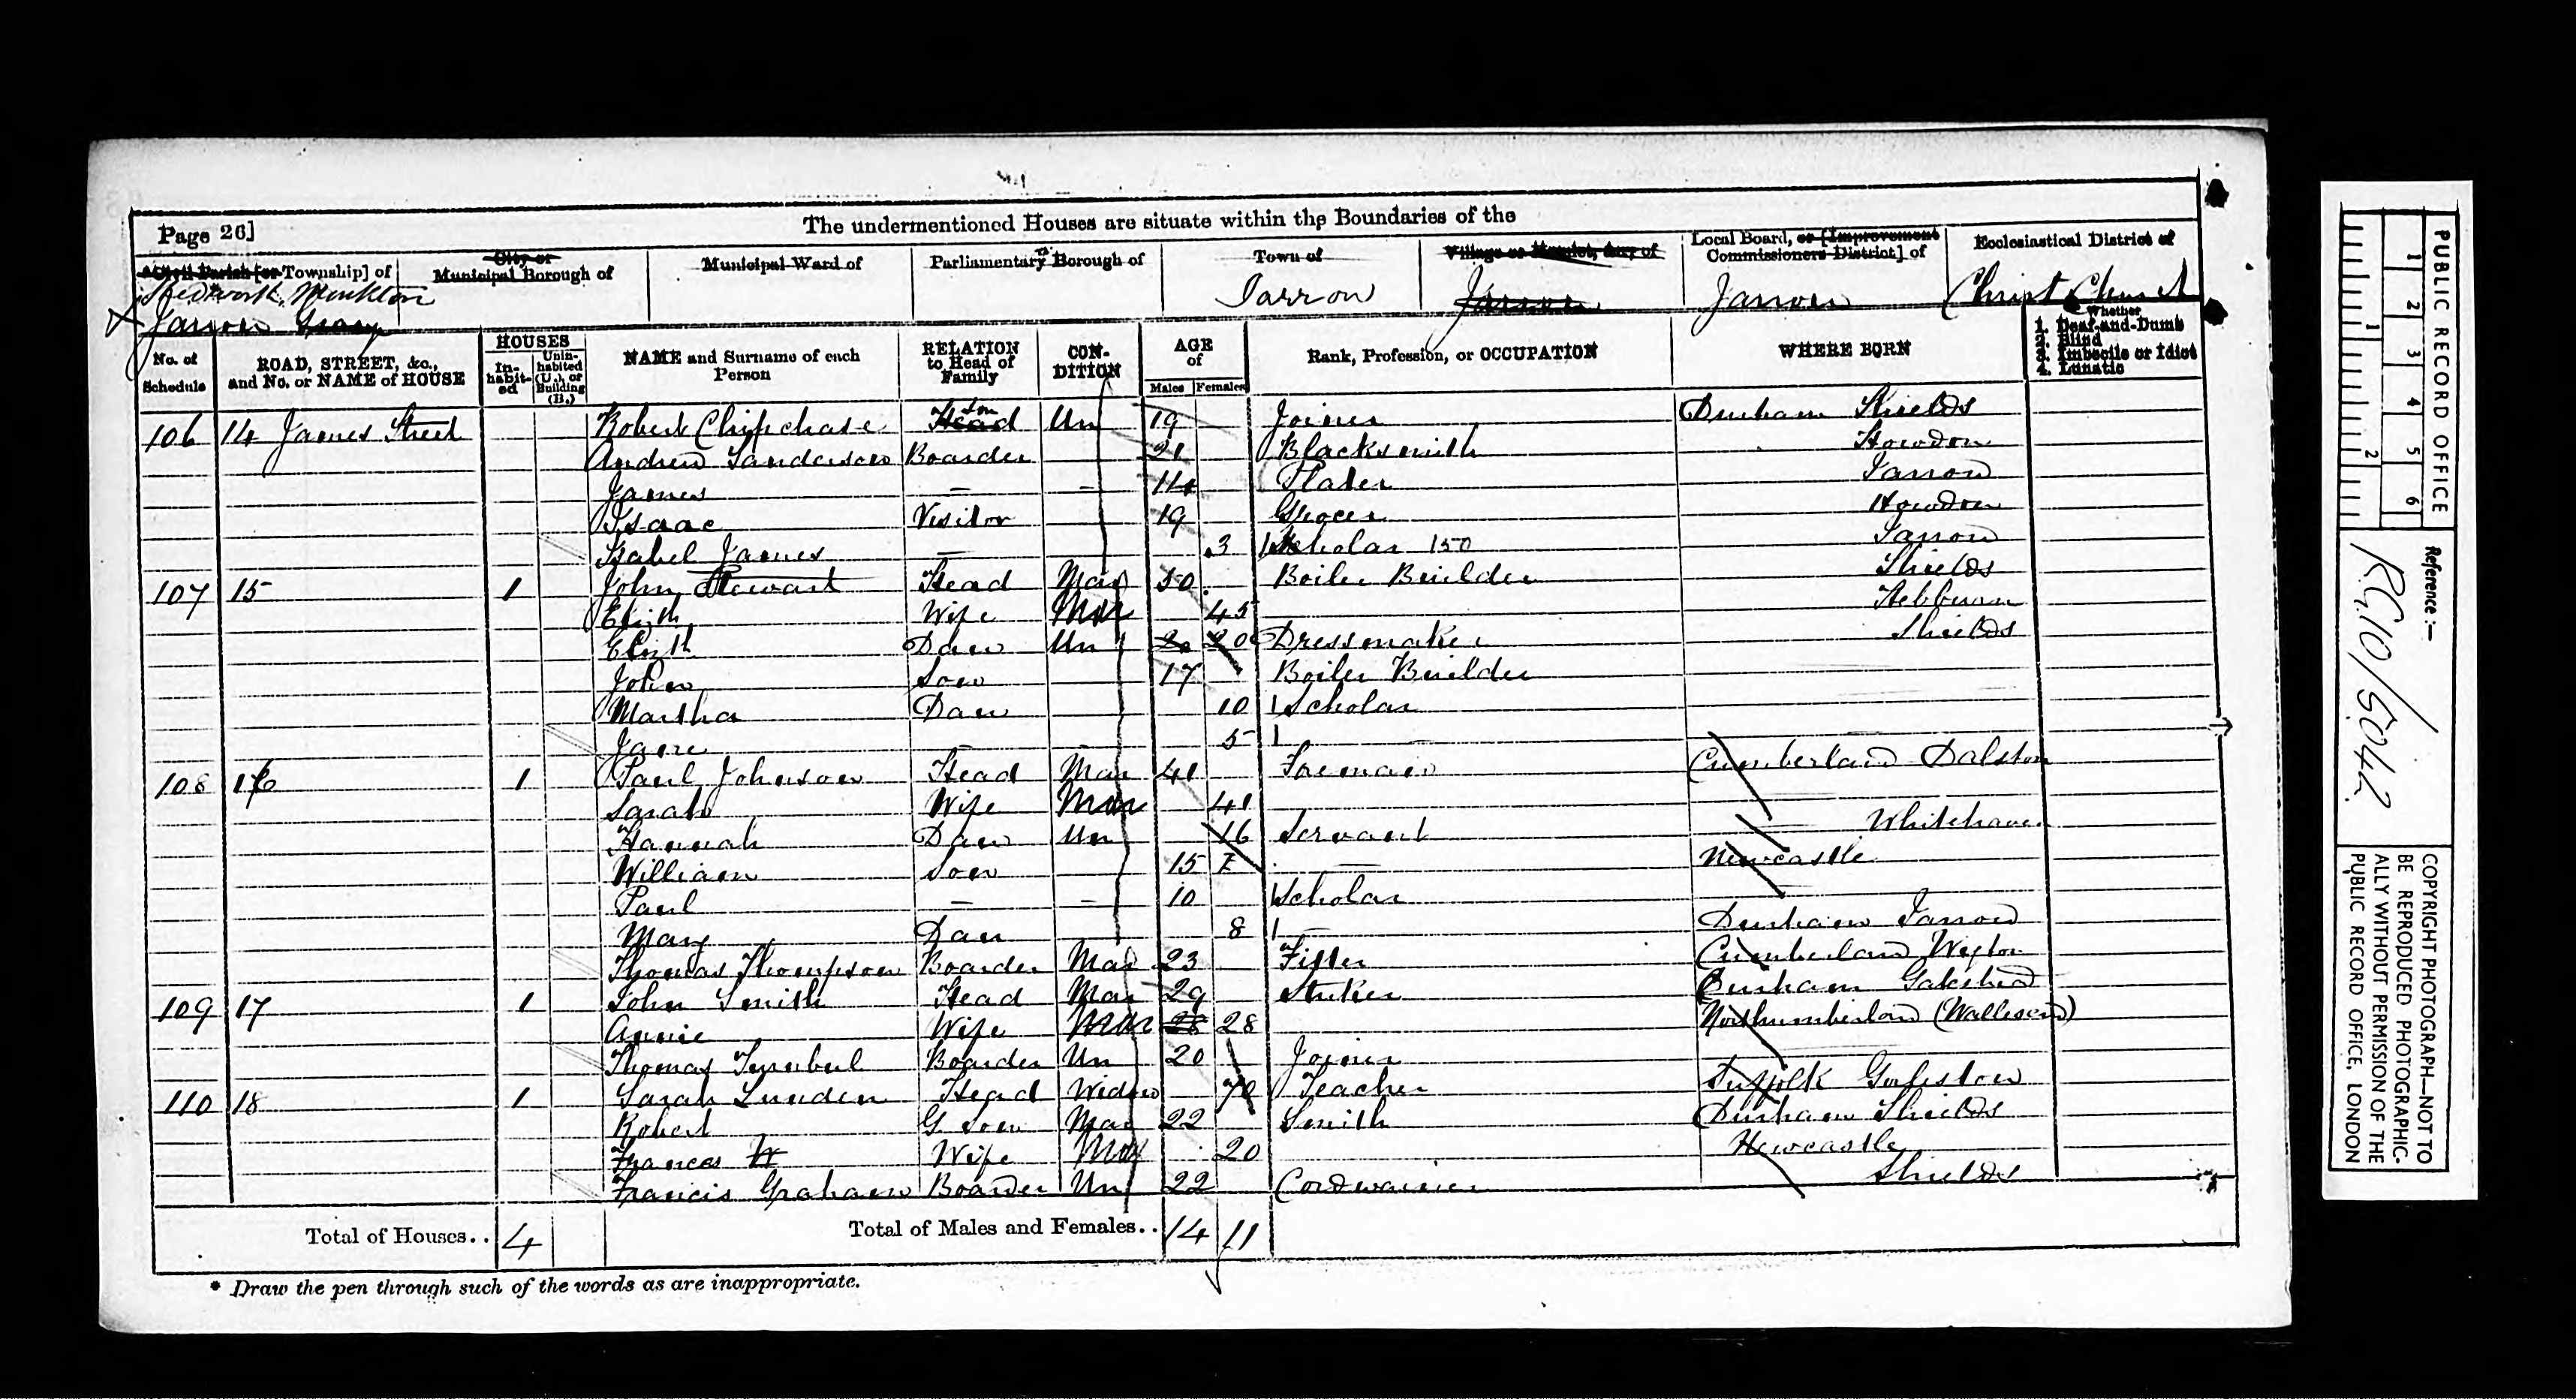 Page 26]
The undermentioned Houses are situate within the Boundaries of the
Civil Parish [or Township] of
City or Municipal Borough of
Municipal Ward of
Parliamentary Borough of
Town of
Village or Hamlet, &c., of
Local Board, or [Improvement Commissioners District] of
Ecclesiastical District of
Hedworth, Monkton
Jarrow
Jarrow
Jarrow
Jarrow
Christ Church
No. of Schedule
ROAD, STREET, &c., and No. or NAME of HOUSE
HOUSES
In-habit-ed
Unin-habited (U.), or Building (B.)
NAME and Surname of each Person
RELATION to Head of Family
CON-DITION
AGE of
Males
Females
Rank, Profession, or OCCUPATION
WHERE BORN
Whether
1. Deaf-and-Dumb
2. Blind
3. Imbecile or Idiot
4. Lunatic
106 14 James Street Robert Chipchase Head Son Un 19 Joiner Durham Shields
Andrew Sanderson Boarder 21 Blacksmith Howdon
James — — 14 Plater Jarrow
Isaac Visitor 19 Grocer Howdon
Isabel James — 3 Scholar 150 Jarrow
107 15 1 John Stewart Head Mar 50 Boiler Builder Shields
Elizth Wife Mar 45 Hebburn
Elizth Daur Un 20 20 Dressmaker Shields
John Son 17 Boiler Builder
Martha Daur 10 Scholar
Jane — 5 —
108 16 1 Paul Johnson Head Mar 41 Foreman Cumberland Dalston
Sarah Wife Mar 41
Hannah Daur Un 16 Servant — Whitehaven
William Son 15 — Newcastle
Paul — — 10 Scholar
Mary Daur 8 — Durham Jarrow
Thomas Thompson Boarder Mar 23 Fitter Cumberland
109 17 1 John Smith Head Mar 29 Striker Durham Gateshead
Annie Wife Mar 28 28 Northumberland (Wallsend)
Thomas Turnbul Boarder Un 20 Joiner
110 18 1 Sarah Lunden Head Widow 70 Teacher Suffolk Gorleston
Robert G Son Mar 22 Smith Durham Shields
Frances W Wife Mar 20 Newcastle
Francis Graham Boarder Un 22 Cordwainer Shields
Total of Houses.. 4
Total of Males and Females.. 14 11
* Draw the pen through such of the words as are inappropriate.
PUBLIC RECORD OFFICE
1 2 3 4 5 6
1 2
Reference:—
RG10/5042
COPYRIGHT PHOTOGRAPH—NOT TO
BE REPRODUCED PHOTOGRAPHIC-
ALLY WITHOUT PERMISSION OF THE
PUBLIC RECORD OFFICE, LONDON